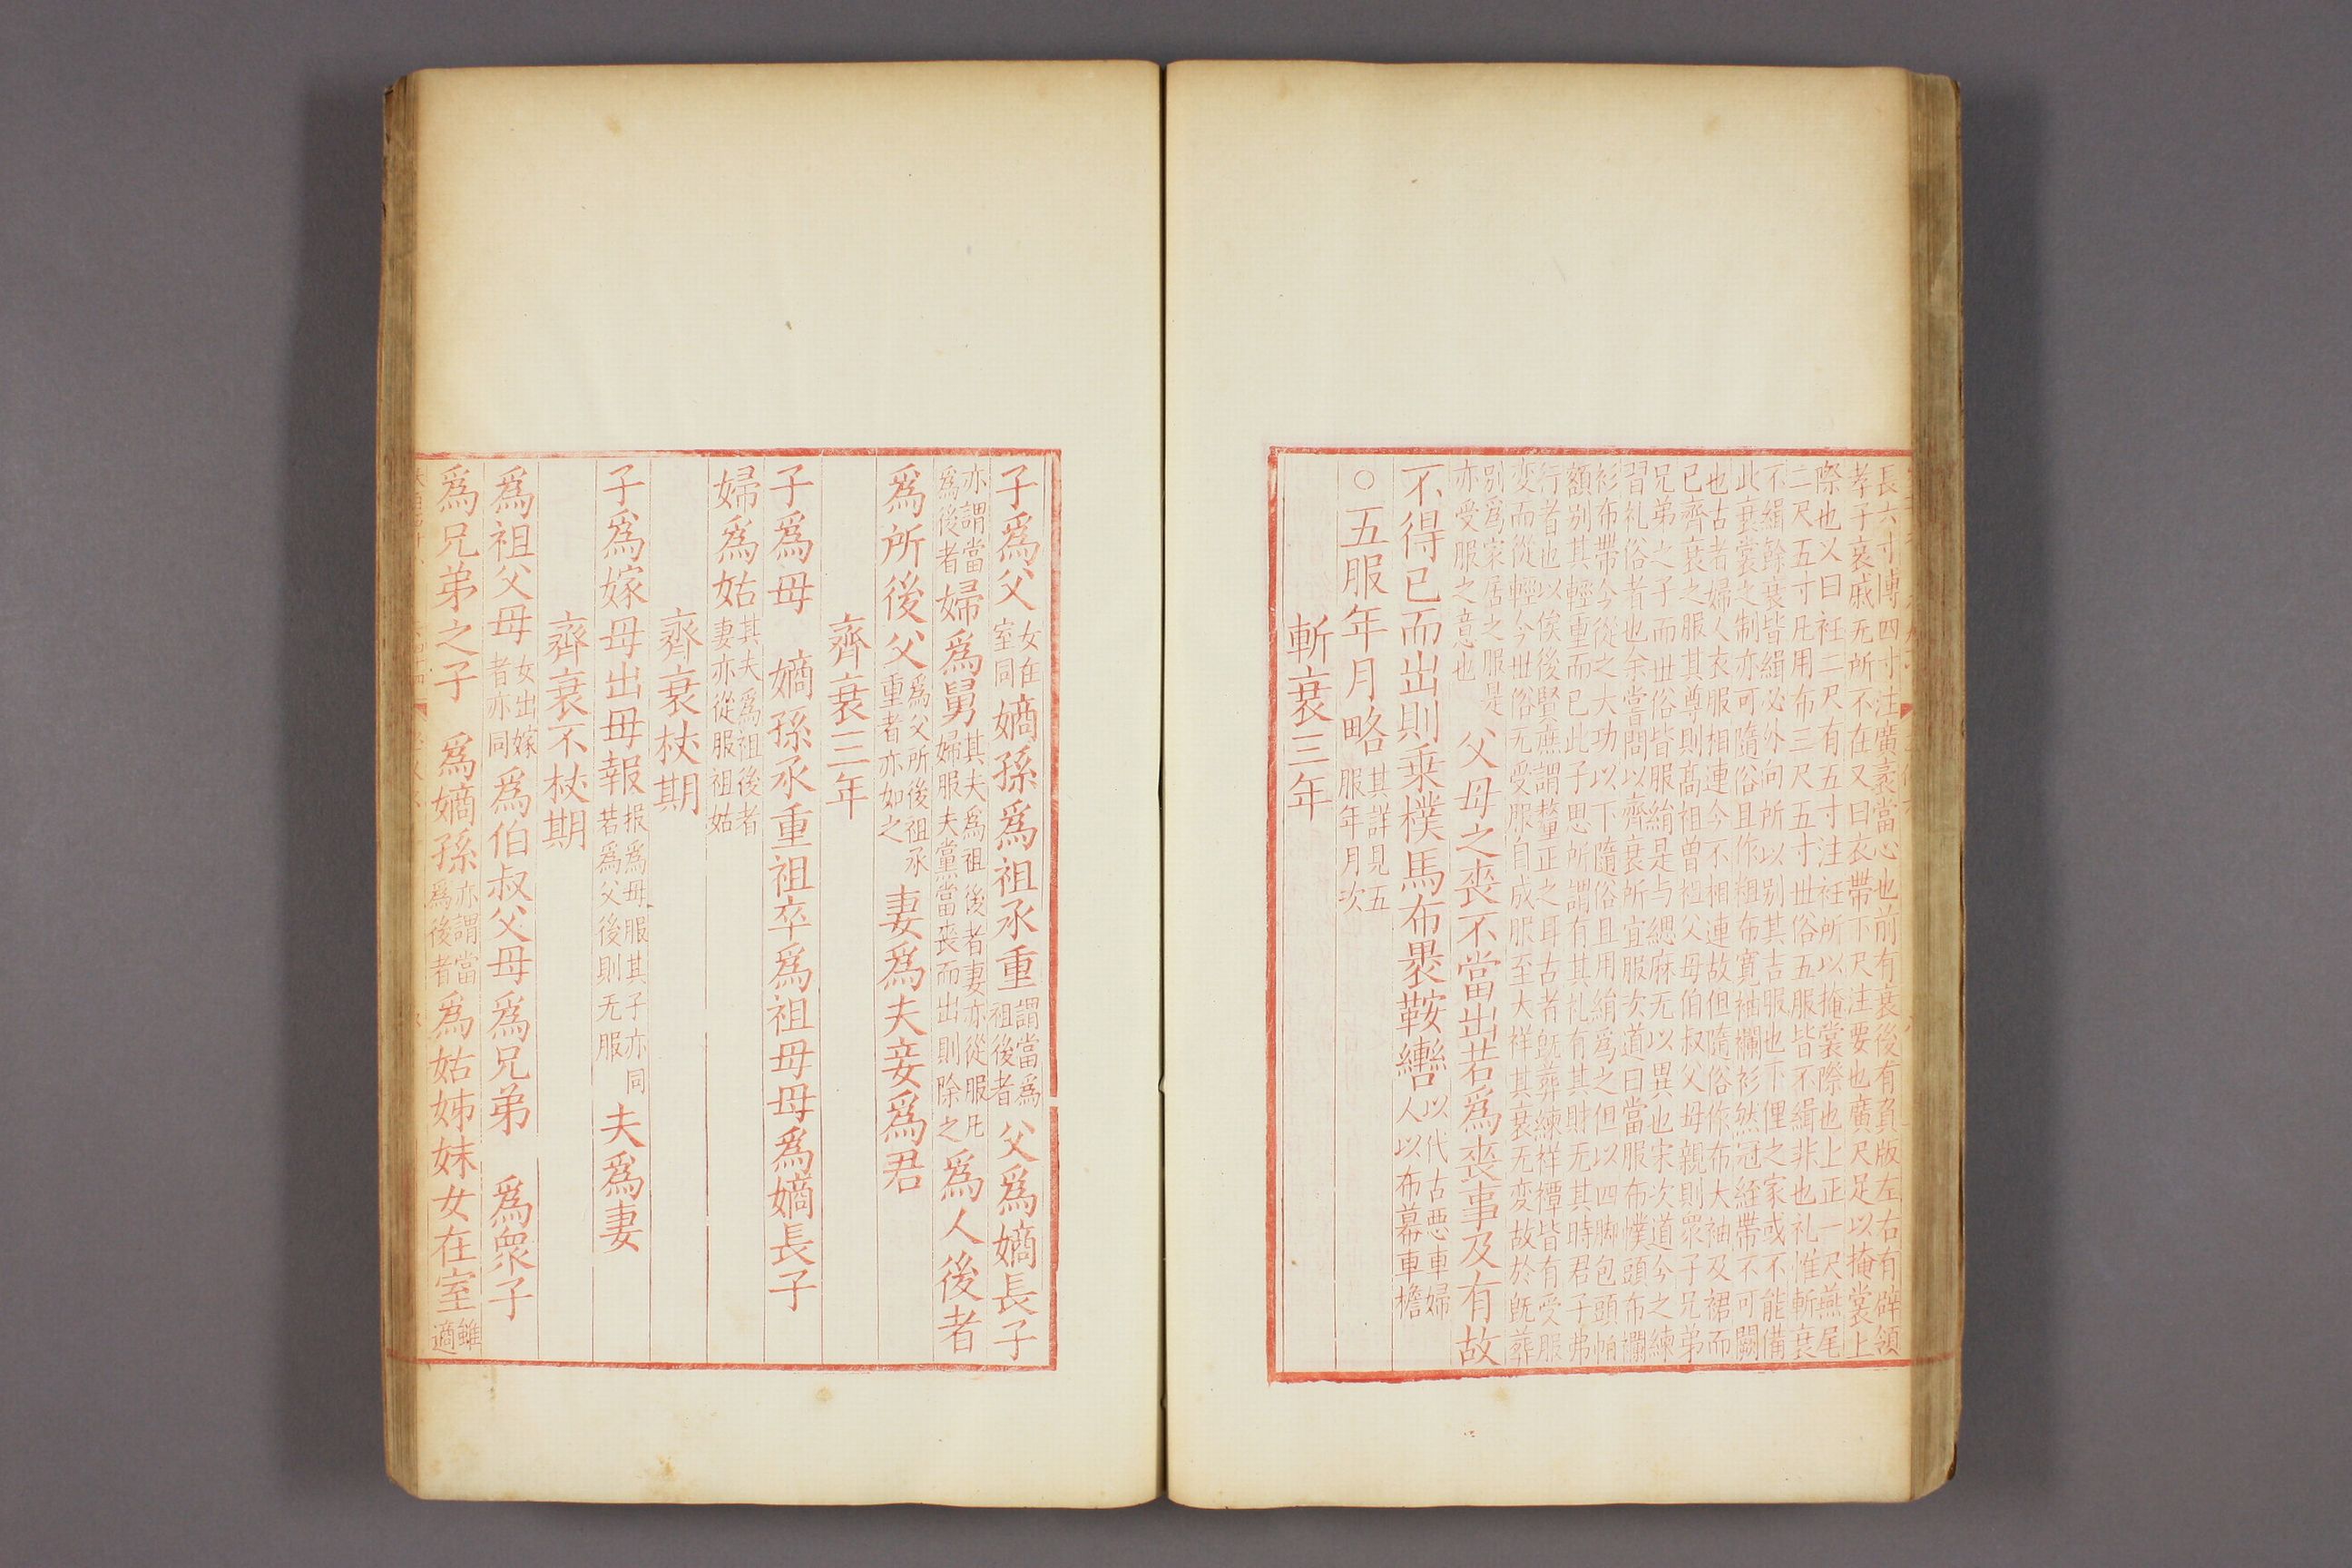 長六寸博四寸注廣袤當心也前有衰後有負版左右有辟領
孝子哀戚无所不在又曰衣帶下尺注要也廣尺足以掩裳上
際也又曰衽二尺有五寸注衽所以掩裳際也上正一尺燕尾
二尺五寸凡用布三尺五寸世俗五服皆不緝非也礼惟斬衰
不緝餘衰皆緝必外向所以别其古服也下俚之家或不能備
此衰裳之制亦可隨俗且作粗布寬袖襴衫然冠絰帶不可闕
也古者婦人衣服相連今不相連故但隨俗作布大袖及裙而
已齊衰之服其尊則髙祖曽祖父母伯叔父母親則衆子兄弟
兄弟之子而世俗皆服絹是与緦麻无以異也宋次道今之練
習礼俗者也余嘗問以齊衰所宜服次道曰當服布幞頭布襴
衫布帶今從之大功以下隨俗且用絹爲之但以四脚包頭帕
額别其輕重而已此子思所謂有其礼有其財无其時君子弗
行者也以俟後賢庶謂釐正之耳古者旣葬練祥禫皆有受服
変而從輕今世俗无受服自成服至大祥其衰无変故於旣葬
别爲家居之服是
亦受服之意也
父母之喪不當出若爲喪事及有故
不得已而出則乗樸馬布褁鞍轡以代古惡車婦
人以布幕車檐
○五服年月略其詳見五
服年月次
斬衰三年
子爲父女在
室同嫡孫爲祖承重謂當爲
祖後者父爲嫡長子
亦謂當
爲後者婦爲舅其夫爲祖後者妻亦從服凡
婦服夫黨當喪而出則除之爲人後者
爲所後父爲父所後祖承
重者亦如之妻爲夫妾爲君
齊衰三年
子爲母 嫡孫承重祖卒爲祖母母爲嫡長子
婦爲姑其夫爲祖後者
妻亦從服祖姑
齊衰杖期
子爲嫁母出母報报爲母服其子亦同
若爲父後則无服夫爲妻
齊衰不杖期
爲祖父母女出嫁
者亦同爲伯叔父母爲兄弟 爲衆子
爲兄弟之子 爲嫡孫亦謂當
爲後者爲姑姊妹女在室雖
適